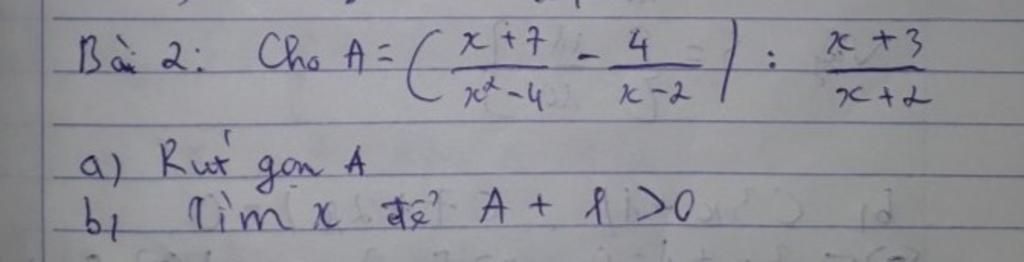 Bài 2: Cho A = ( \frac{x+7}{x^2-4} - \frac{4}{x-2} ) : \frac{x+3}{x+2}
a) Rút gọn A
b) Tìm x để A + 1 > 0